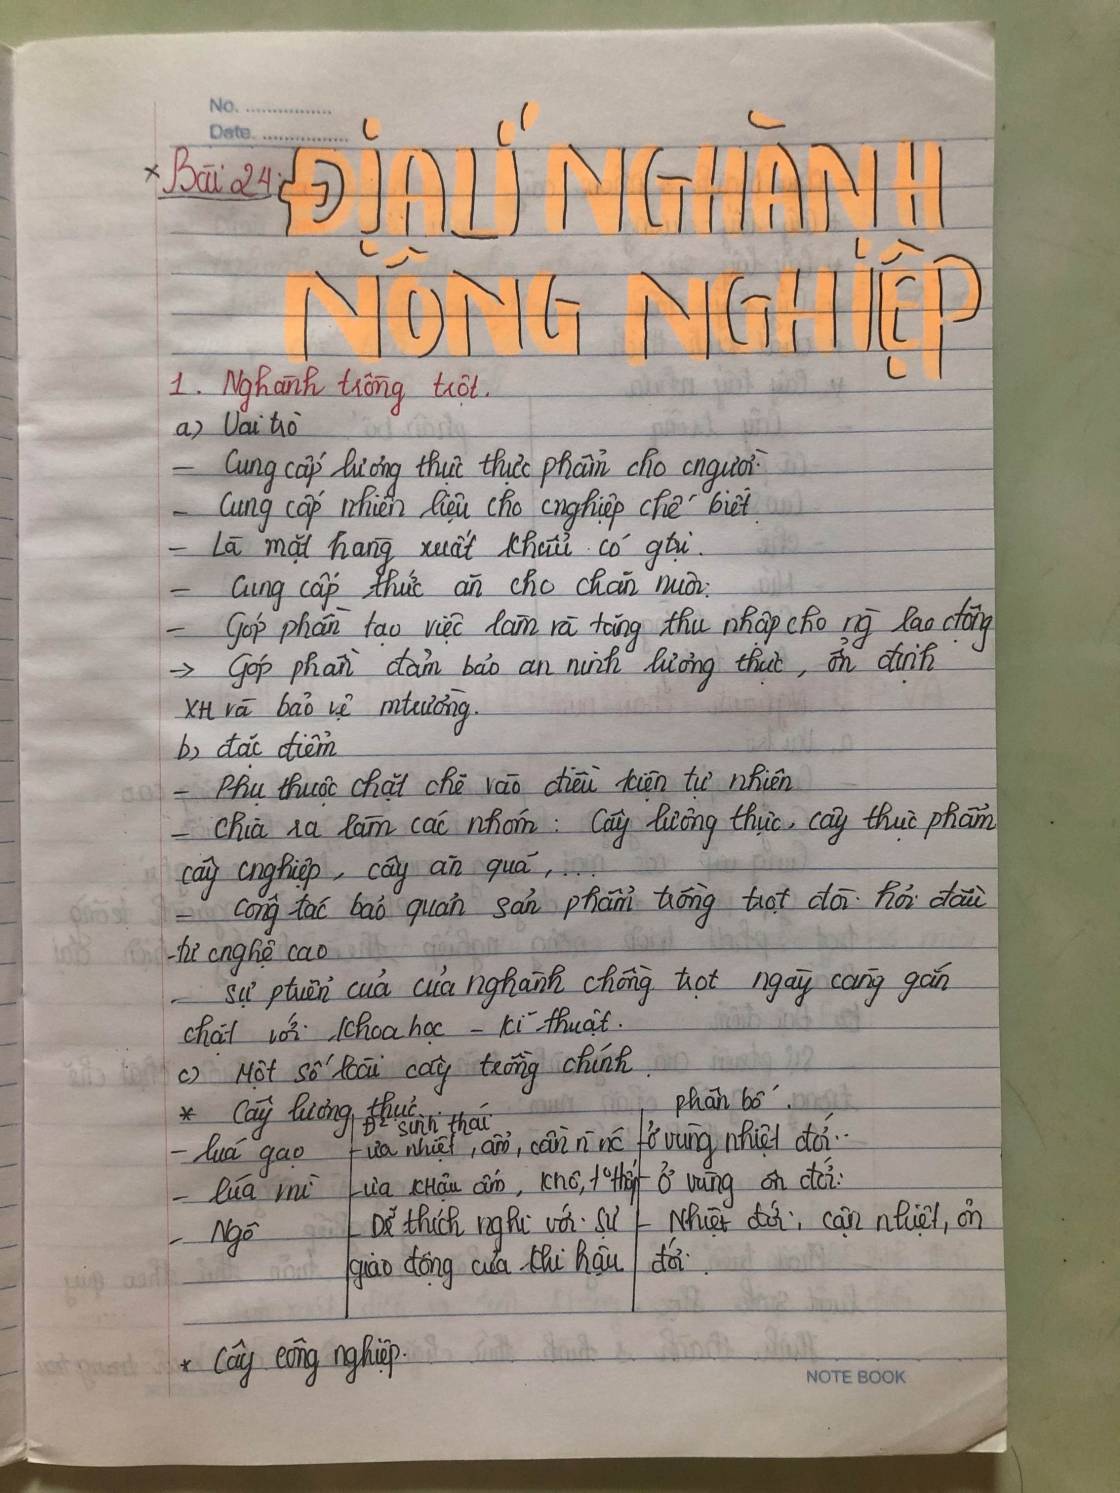 No. ................
Date. ................
* Bài 24: ĐỊA LÍ NGHÀNH
NÔNG NGHIỆP
1. Nghành trồng trọt.
a) Vai trò
- Cung cấp lương thực thực phẩm cho cngười.
- Cung cấp nhiên liệu cho cnghiệp chế biết.
- Là mặt hang xuất khẩu có gtri.
- Cung cấp thức ăn cho chăn nuôi.
- Góp phần tạo việc làm và tăng thu nhập cho ng lao động
→ Góp phần đảm bảo an ninh lương thực, ổn định
XH và bảo vệ mtường.
b) đặc điểm
- Phụ thuộc chặt chẽ vào điều kiện tự nhiên
- chia ra làm các nhóm : Cây lương thực, cây thực phẩm
cây cnghiệp, cây ăn quả, ....
- công tác bảo quản sản phẩm trồng trọt đòi hỏi đầu
tư cnghệ cao
- sự ptuển của của nghành chồng trọt ngày càng gắn
chặt với khoa học - kĩ thuật.
c) Một số loài cây trồng chính.
* Cây lương thực
Đ² sinh thái
phân bố.
- lúa gạo - ưa nhiệt, ẩm, cần n nc - ở vùng nhiệt đới.
- lúa mì - ưa KHậu ấm, khô, t° thấp - ở vùng ôn đới.
- Ngô - Dễ thích nghi với sự - Nhiệt đới, cận nhiệt, ôn
giao động của khi hậu đới.
* Cây công nghiệp.
NOTE BOOK